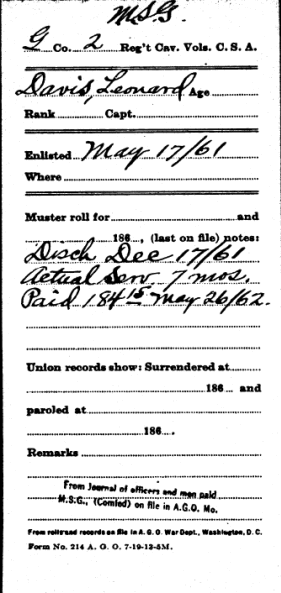 M.S.G.
G Co. 2 Reg't Cav. Vols. C. S. A.
Davis, Leonard Age
Rank Capt.
Enlisted May 17/61
Where
Muster roll for and
186 , (last on file) notes:
Disch Dec 17/61
Actual Serv 7 mos.
Paid 184 15 May 26/62.
Union records show: Surrendered at
186 and
paroled at
186 .
Remarks
From Journal of officers and men paid
M.S.G., (Comfed) on file in A.G.O. Mo.
From rolls and records on file in A. G. O. War Dept., Washington, D. C.
Form No. 214 A. G. O. 7-19-13-5M.